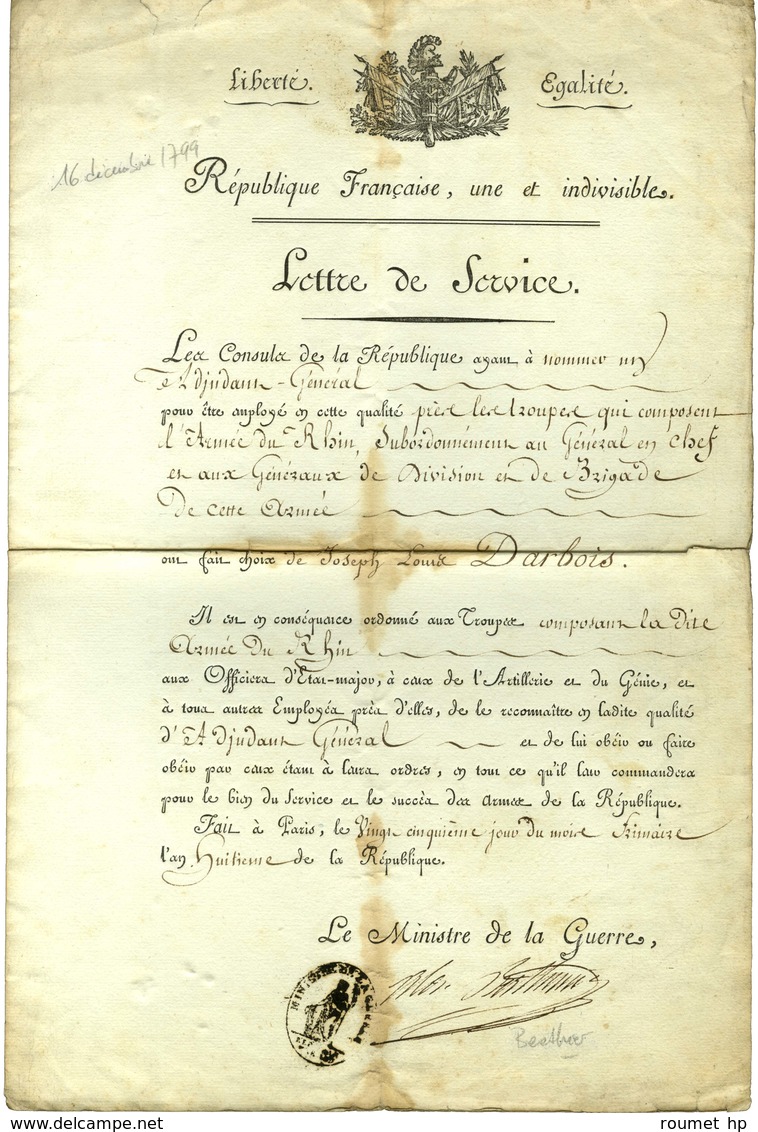 Liberté. Egalité.
16 décembre 1799
République Française, une et indivisible.
Lettre de Service.
Les Consuls de la République ayant à nommer un
Adjudant-Général
pour être employé en cette qualité près les troupes qui composent
l'Armée du Rhin, Subordonnément au Général en chef
et aux Généraux de Division et de Brigade
De cette Armée
ont fait choix de Joseph Louis Darbois.
Il est en conséquence ordonné aux Troupes composant la dite
Armée du Rhin
aux Officiers d'Etat-major, à ceux de l'Artillerie et du Génie, et
à tous autres Employés près d'elles, de le reconnaître en ladite qualité
d'Adjudant Général et de lui obéir ou faire
obéir par ceux étant à leurs ordres, en tout ce qu'il leur commandera
pour le bien du Service et le succès des armes de la République.
Fait à Paris, le Vingt cinquième jour du mois de frimaire
l'an huitieme de la République.
Le Ministre de la Guerre,
MINISTRE DE LA GUERRE
Alex. Berthier
roumet hp